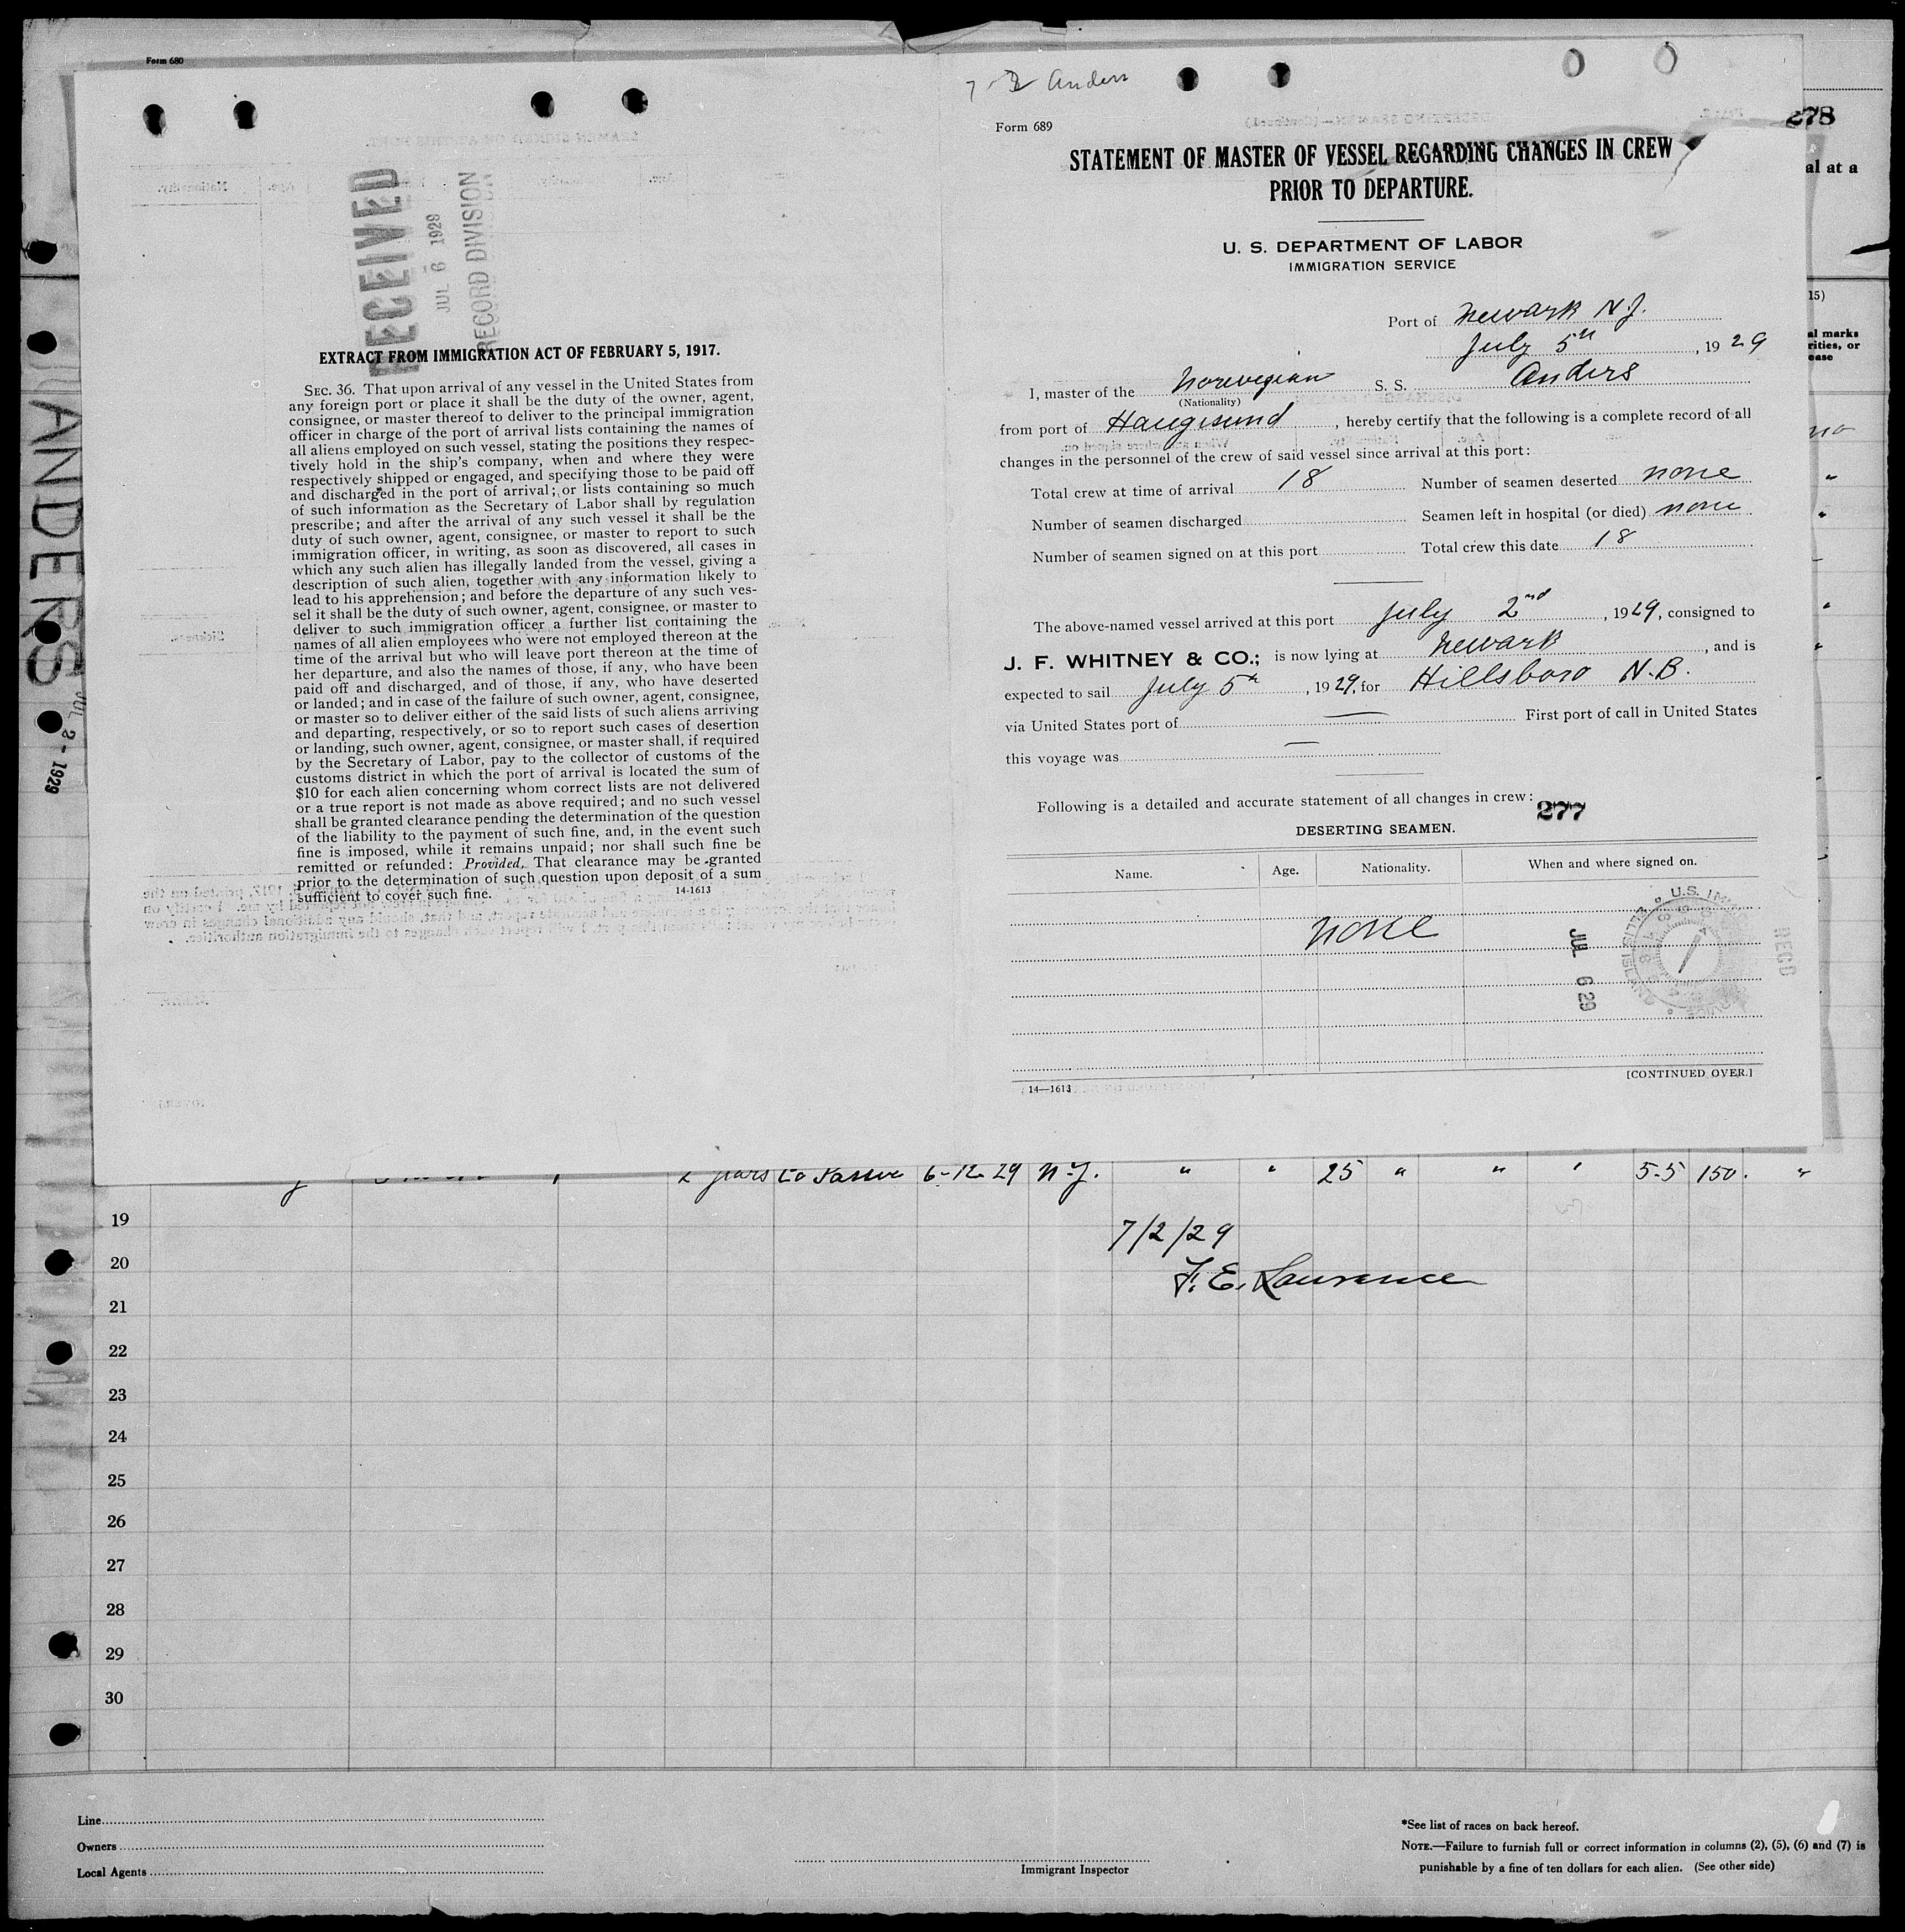 Form 680
RECEIVED
JUL 6 1929
RECORD DIVISION
EXTRACT FROM IMMIGRATION ACT OF FEBRUARY 5, 1917.
SEC. 36. That upon arrival of any vessel in the United States from
any foreign port or place it shall be the duty of the owner, agent,
consignee, or master thereof to deliver to the principal immigration
officer in charge of the port of arrival lists containing the names of
all aliens employed on such vessel, stating the positions they respec-
tively hold in the ship's company, when and where they were
respectively shipped or engaged, and specifying those to be paid off
and discharged in the port of arrival; or lists containing so much
of such information as the Secretary of Labor shall by regulation
prescribe; and after the arrival of any such vessel it shall be the
duty of such owner, agent, consignee, or master to report to such
immigration officer, in writing, as soon as discovered, all cases in
which any such alien has illegally landed from the vessel, giving a
description of such alien, together with any information likely to
lead to his apprehension; and before the departure of any such ves-
sel it shall be the duty of such owner, agent, consignee, or master to
deliver to such immigration officer a further list containing the
names of all alien employees who were not employed thereon at the
time of the arrival but who will leave port thereon at the time of
her departure, and also the names of those, if any, who have been
paid off and discharged, and of those, if any, who have deserted
or landed; and in case of the failure of such owner, agent, consignee,
or master so to deliver either of the said lists of such aliens arriving
and departing, respectively, or so to report such cases of desertion
or landing, such owner, agent, consignee, or master shall, if required
by the Secretary of Labor, pay to the collector of customs of the
customs district in which the port of arrival is located the sum of
$10 for each alien concerning whom correct lists are not delivered
or a true report is not made as above required; and no such vessel
shall be granted clearance pending the determination of the question
of the liability to the payment of such fine, and, in the event such
fine is imposed, while it remains unpaid; nor shall such fine be
remitted or refunded: Provided, That clearance may be granted
prior to the determination of such question upon deposit of a sum
sufficient to cover such fine. 14-1613
ANDERS
JUL 2 - 1929
7-2 Anders
Form 689
278
STATEMENT OF MASTER OF VESSEL REGARDING CHANGES IN CREW
PRIOR TO DEPARTURE.
U. S. DEPARTMENT OF LABOR
IMMIGRATION SERVICE
Port of Newark N.J.
July 5th, 1929
I, master of the Norwegian S. S. Anders
(Nationality)
from port of Haugesund, hereby certify that the following is a complete record of all
changes in the personnel of the crew of said vessel since arrival at this port:
Total crew at time of arrival 18 Number of seamen deserted none
Number of seamen discharged Seamen left in hospital (or died) none
Number of seamen signed on at this port Total crew this date 18
The above-named vessel arrived at this port July 2nd, 1929, consigned to
J. F. WHITNEY & CO.; is now lying at Newark, and is
expected to sail July 5th, 1929, for Hillsboro N.B.
via United States port of — First port of call in United States
this voyage was —
Following is a detailed and accurate statement of all changes in crew:
277
DESERTING SEAMEN.
Name. Age. Nationality. When and where signed on.
none
JUL 6 29
RECD
14—1613 [CONTINUED OVER.]
al at a
15)
al marks
rities, or
ease
2 years 6-12-29 N-Y. " " 25 " " " 5-5 150. "
19
7/2/29
20
F. E. Lawrence
21
22
23
24
25
26
27
28
29
30
Line
Owners
Local Agents
Immigrant Inspector
*See list of races on back hereof.
NOTE.—Failure to furnish full or correct information in columns (2), (5), (6) and (7) is
punishable by a fine of ten dollars for each alien. (See other side)